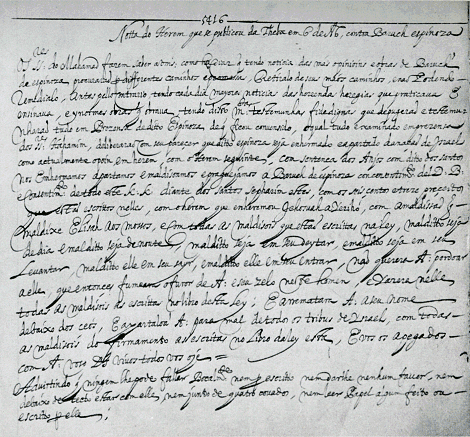 5416
Notta do Herem que se publicou da Theba em 6 de Ab, contra Baruch espinoza
Os SSres do Mahamad fazem saber a Vms como a diaz q tendo noticia das mas opinioins e obras de Baruch
de espinoza procurarão p differentes caminhos e promessas Retiralo de seus máos caminhos, e não Podendo
Remedialo, Antes pello contrario, tendo cada dia mayores noticias das horrendas heregias que praticava e
ensinava, e ynormes obras q obrava, tendo disto mtas testemunhas fidedignas que depugerão e testemu
nharão tudo em Prezensa de ditto Espinoza, de q ficou convensido, o qual tudo examinado em prezensa
dos ssres Hahamim, deliberarão com seu parecer que ditto espinoza seja enhermado e apartado da nação de Israel
como actualmente o poin em herem, com o Herem seguinte, com sentença dos Anjos com ditto dos santos
nos Enhermamos apartamos e maldisoamos e praguejamos a Baruch de espinoza com consentimto del D. B.
e consentimto de todo este K. K. diante dos santos sepharim estes, com os seis centos e treze preceitos
que estão escrittos nelles, com o herem que enheremou Yehosuah a Yeriho, com a maldissão q
maldixe Elisah aos mossos, e com todas as maldisois que estão escrittas na Ley, malditto seja
de dia e malditto seja de noute, malditto seja em seu deytar, e malditto seja em seu
Levantar, malditto elle em seu sayr, e malditto elle em seu entrar, não querera A: perdoar
a elle, que entonces fumeara o furor de A: e seu zelo neste homem, e yazera nelle
todas as maldisois as escrittas no libro desta ley; E arrematara A: a seu nome
debaixo dos ceos, E apartaloa A: para mal de todos os tribus de Israel, com todas
as maldisois do firmamento as escrittas no Libro da ley esta, E vos os apegados
com A: vosso Ds vivos todos vos oje
Advirtindo q ningem lhe pode fallar Bocalmte nem p escritto nem darlhe nenhum favor, nem
debaixo de tecto estar com elle, nem junto de quatro covados, nem leer Papel algum feito ou
escritto p elle;